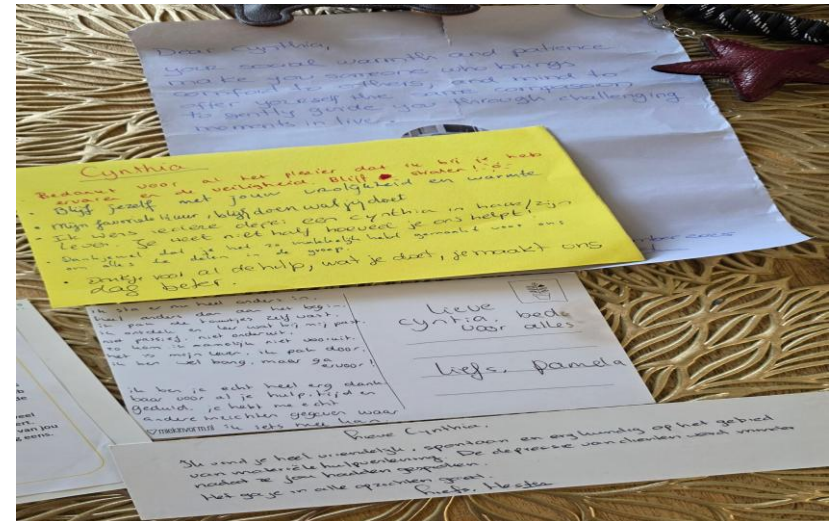 Dear Cynthia,
your social warmth and patience
make you someone who brings
comfort to others, and mind to
offer yourself the same compassion
to gently guide you through challenging
moments in live.
Cynthia
Bedankt voor al het plezier dat ik bij je heb
ervaren en de veiligheid. Blijf stralen!
- Blijf jezelf met jouw vrolijkheid en warmte
- Mijn favoriete kluur, blijf doen wat jij doet
- Ik wens iedere cliënt een Cynthia in haar/zijn
leven. Je weet niet half hoeveel je ons helpt!
- Dankjewel dat je het zo makkelijk hebt gemaakt voor ons
om alles te delen in de groep.
• dankje voor al de hulp, wat je doet, je maakt ons
dag beter.
ik sta er nu heel anders in,
heel anders dan aan het begin
ik pak de touwtjes zelf vast.
ik ontdek en leer wat bij mij past.
niet passief, niet onderuit.
zo kom ik namelijk niet vooruit.
het is mijn leven, ik pak door,
ik ben wel bang, maar ga
ervoor!
ik ben je echt heel erg dank
baar voor al je hulp, tijd en
geduld. je hebt me echt
andere inzichten gegeven waar
ik iets mee kan
©mekinvorm.nl
Lieve
Cynthia, beda
voor alles
Liefs, Pamela
eel
ert.
van jou
g eens.
Lieve Cynthia,
Ik vind je heel vriendelijk, spontaan en erg kundig op het gebied
van materiële hulpverlening. De depressie van cliënten word minder
nadat ze jou hadden gesproken.
Het ga je in alle opzichten goed.
Liefs, Hester